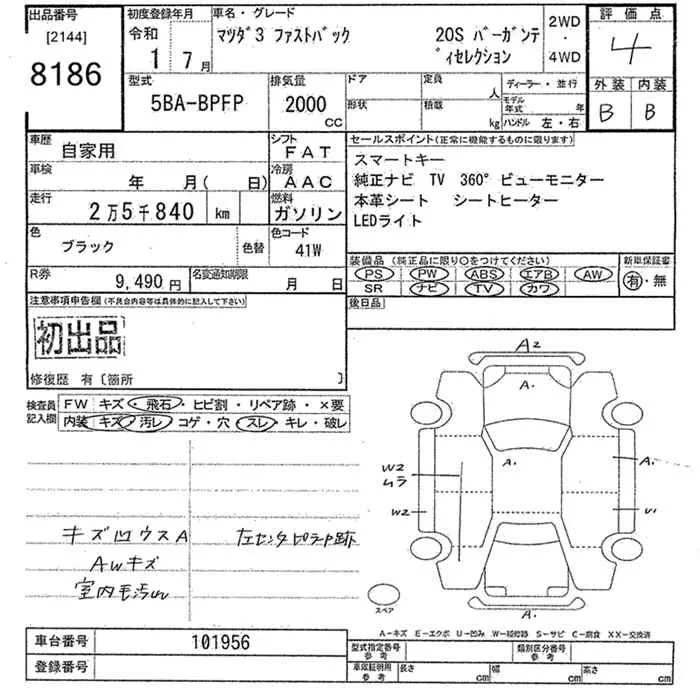 出品番号 [2144] 8186
初度登録年月 令和 1 7月
車名・グレード マツダ3 ファストバック 20S バーガンテ
ィセレクション
2WD ・ 4WD
評価点 4
外装 内装
B B
型式 5BA-BPFP
排気量 2000 cc
ドア 形状
定員 人 積載 kg
ディーラー・並行
モデル年式 年
ハンドル 左・右
車歴 自家用
シフト FAT
車検 年 月( 日)
冷房 AAC
走行 2万5千840 km
燃料 ガソリン
色 ブラック 色替
色コード 41W
R券 9,490円
名変通知期限 月 日
セールスポイント(正常に機能するものに限ります)
スマートキー
純正ナビ TV 360° ビューモニター
本革シート シートヒーター
LEDライト
装備品 (純正品に限り〇をつけてください)
PS PW ABS エアB AW
SR ナビ TV カワ
新車保証書
有・無
後日品
注意事項申告欄(不具合内容等は具体的に記入して下さい)
初出品
修復歴 有〔箇所 〕
検査員記入欄
FW キズ・飛石・ヒビ割・リペア跡・×要
内装 キズ 汚レ コゲ・穴 スレ キレ・破レ
キズ凹ウスA 左センタピラーP跡
Awキズ
室内毛汚れ
A2
A.
A.
A.
W2
ムラ
W2
U1
A.
スペア
A-キズ E-エクボ U-凹み W-補修跡 S-サビ C-腐食 XX-交換済
車台番号 101956
登録番号
型式指定番号 参考
類別区分番号 参考
車庫証明用 参考 長さ cm 幅 cm 高さ cm